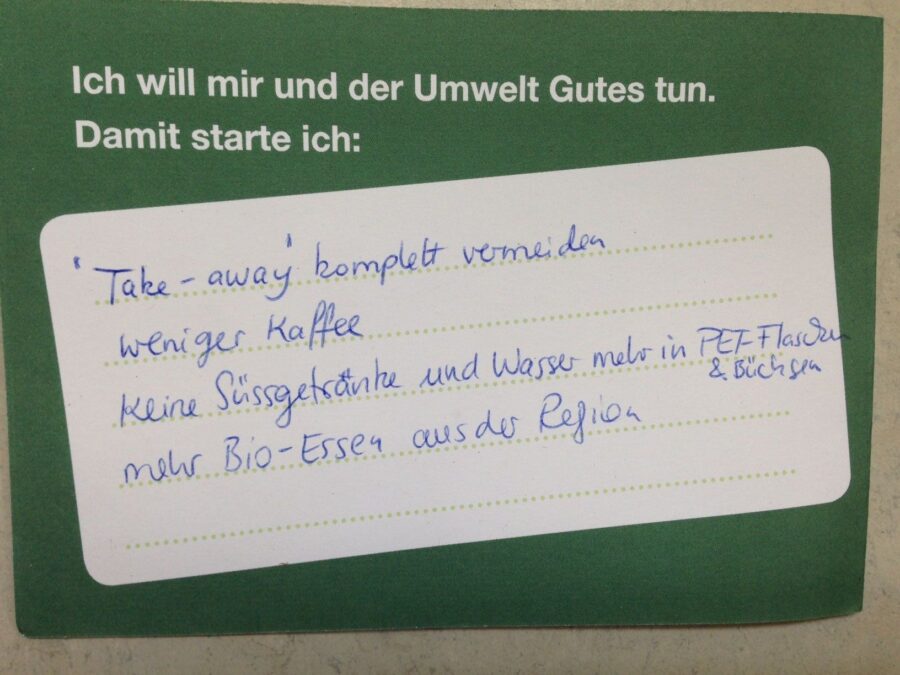 Ich will mir und der Umwelt Gutes tun.
Damit starte ich:
"Take-away" komplett vermeiden
weniger Kaffee
Keine Süssgetränke und Wasser mehr in PET-Flaschen
& Büchsen
mehr Bio-Essen aus der Region